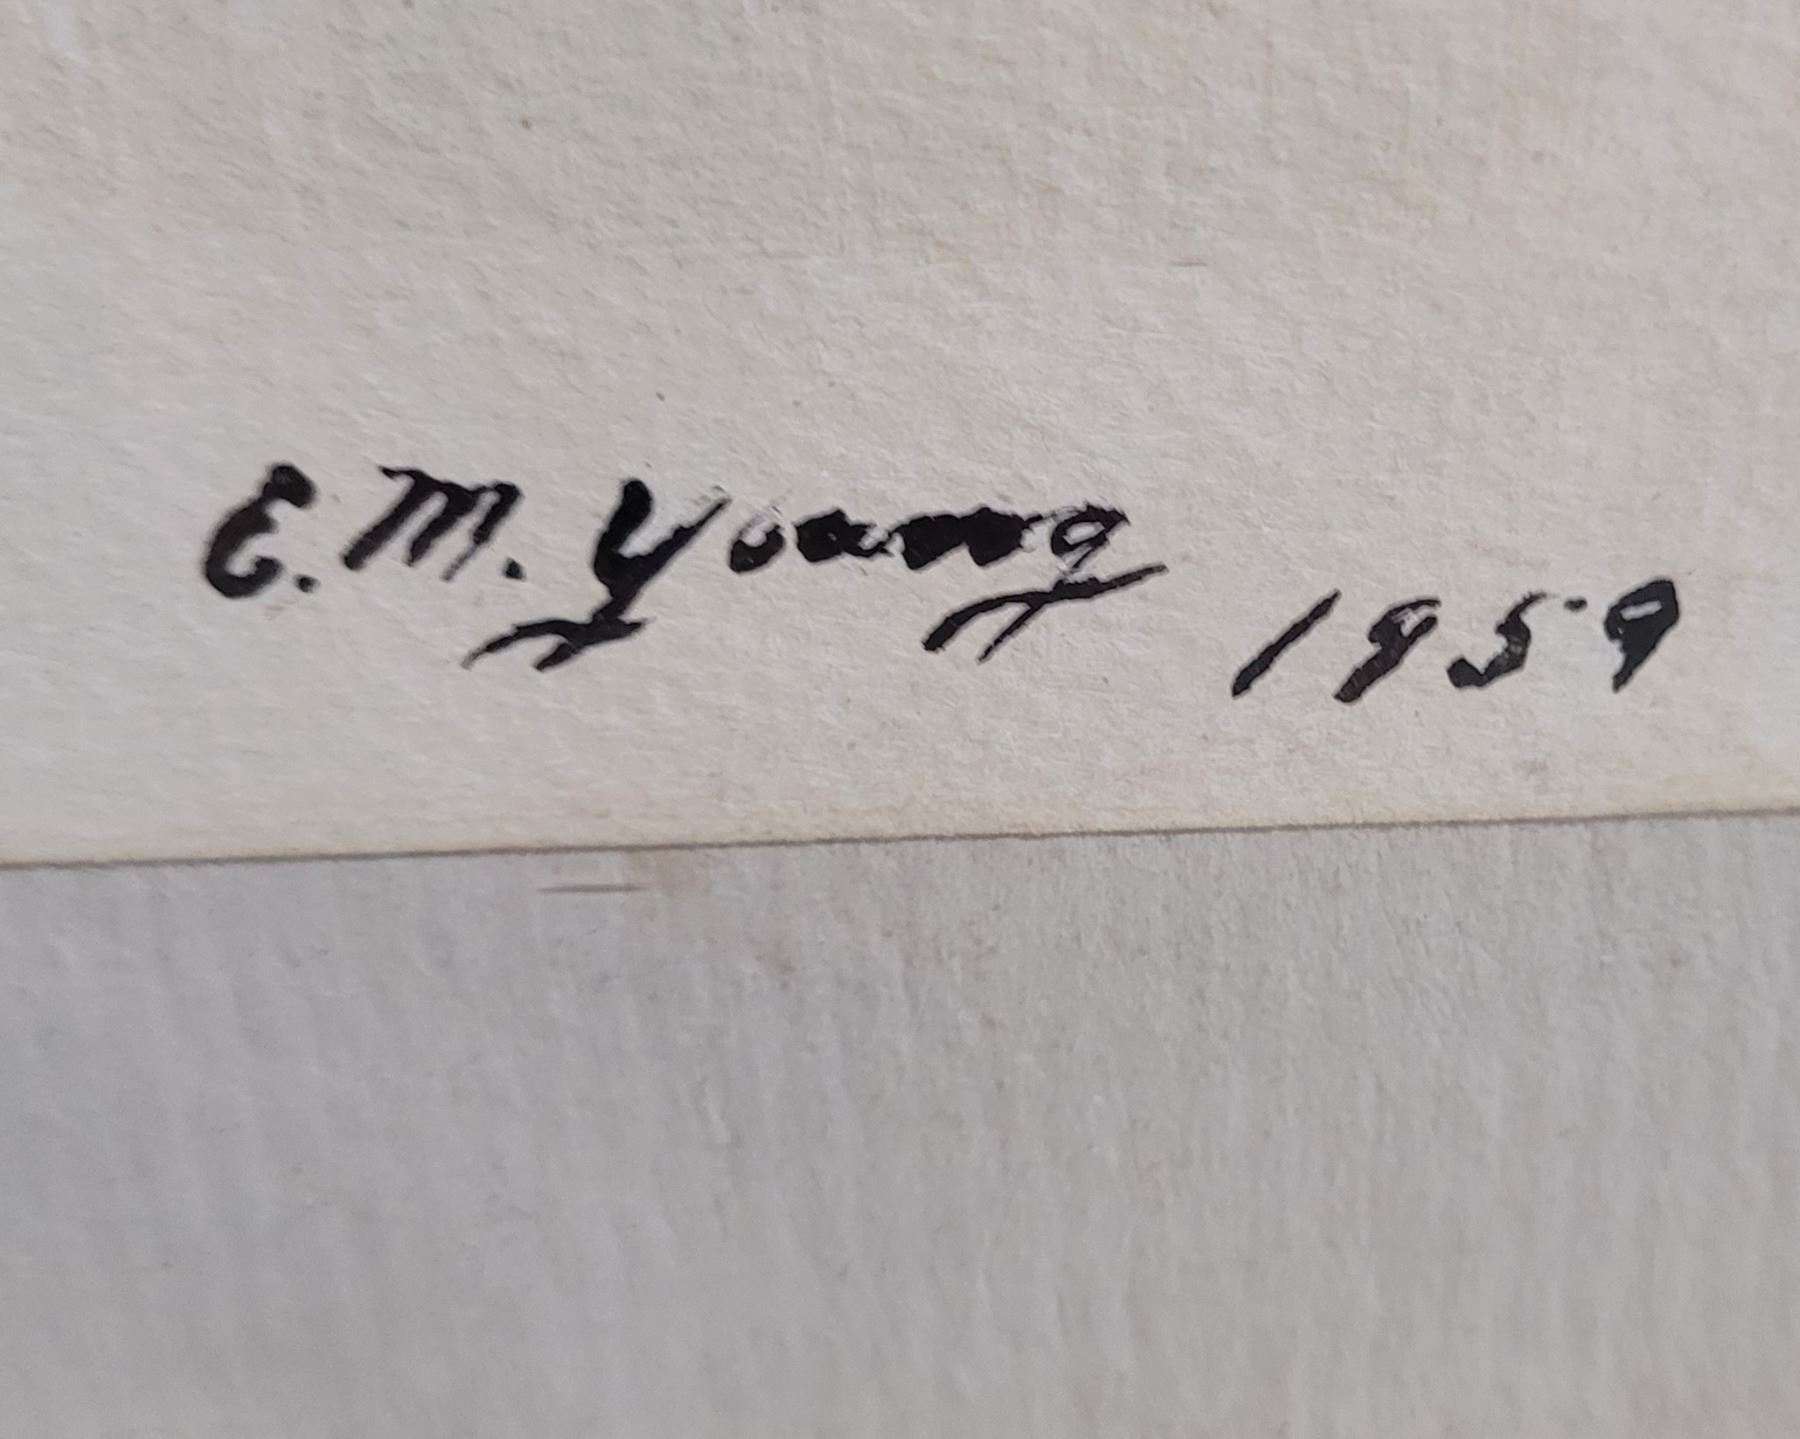 E. M. Young 1959